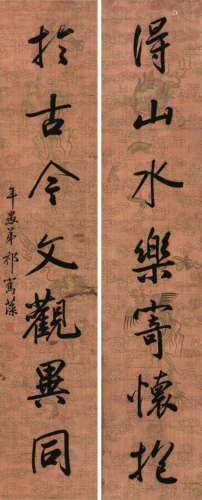 得山水樂寄懷抱
於古今文觀異同
年愚弟祁寯藻